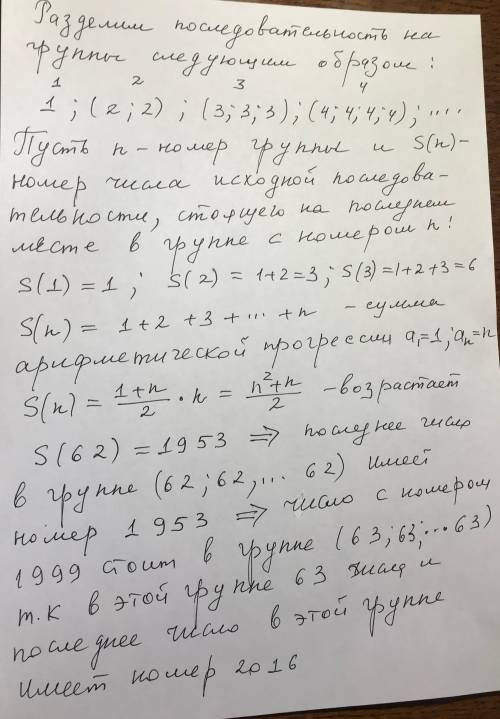 Разделим последовательность на
группы следующим образом:
1 2 3 4
1 ; (2 ; 2) ; (3; 3; 3) ; (4; 4; 4; 4) ; ....
Пусть n - номер группы и S(n) -
номер числа исходной последова-
тельности, стоящего на последнем
месте в группе с номером n:
S(1) = 1 ; S(2) = 1+2=3 ; S(3)=1+2+3=6
S(n) = 1+2+3+...+n - сумма
арифметической прогрессии a₁=1; aₙ=n
S(n) = (1+n)/2 · n = (n²+n)/2 - возрастает
S(62) = 1953 ⇒ последнее число
в группе (62; 62, ... 62) имеет
номер 1953 ⇒ число с номером
1999 стоит в группе (63; 63; ... 63)
т.к в этой группе 63 числа и
последнее число в этой группе
имеет номер 2016